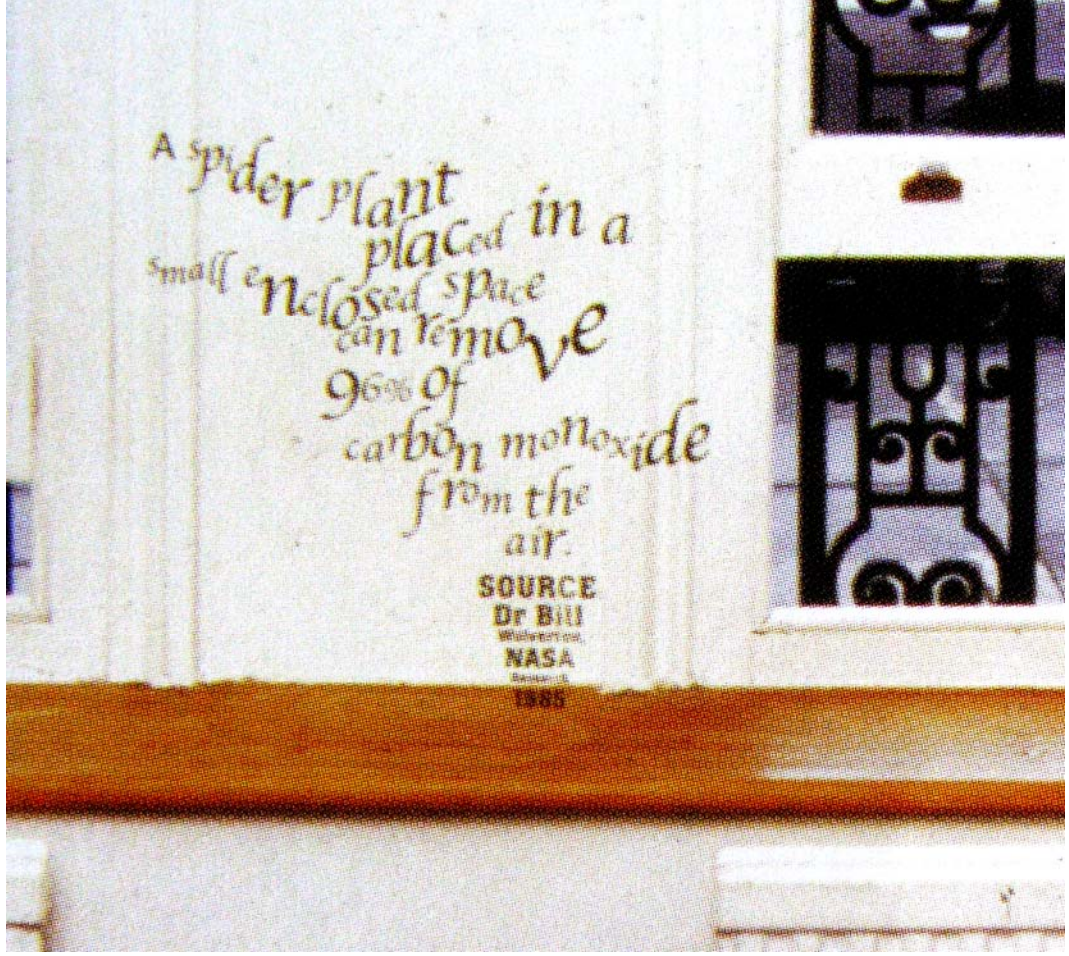 A spider plant
placed in a
small enclosed space
can remove
96% of
carbon monoxide
from the
air.
SOURCE
Dr Bill
Wolverton,
NASA
Research
1985